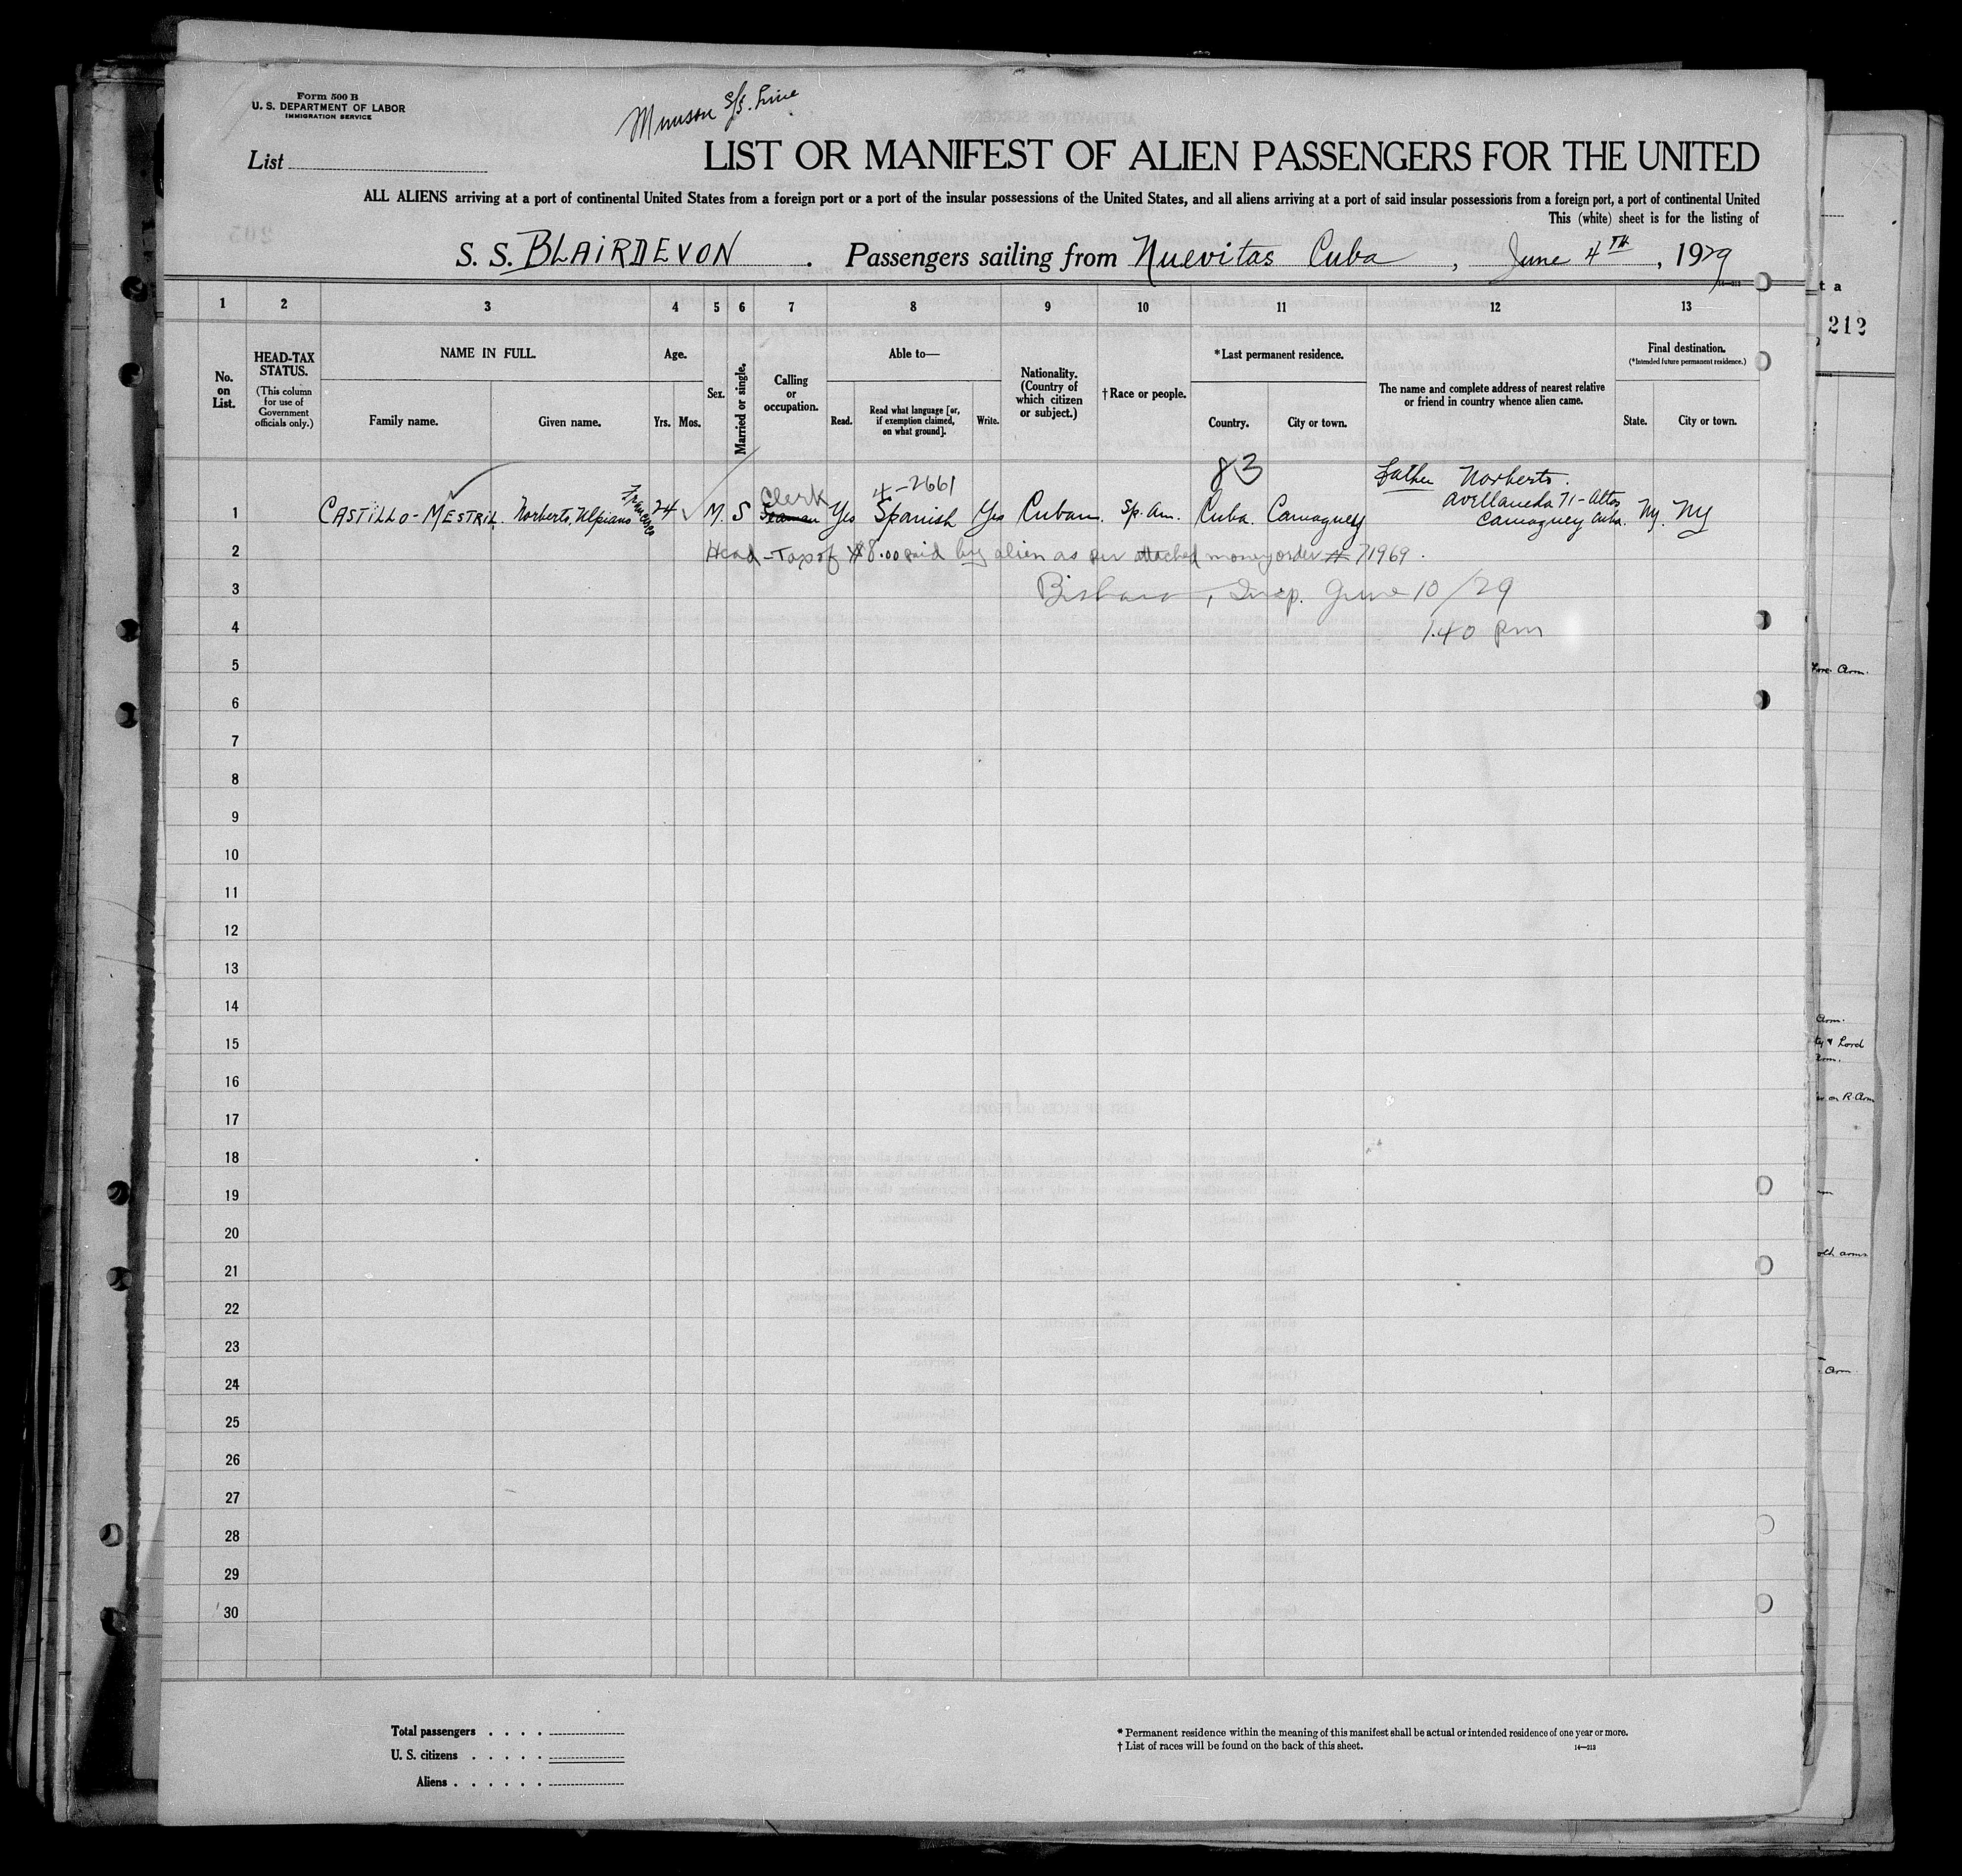 Form 500 B
U. S. DEPARTMENT OF LABOR
IMMIGRATION SERVICE
Munson S/S. Line
List
LIST OR MANIFEST OF ALIEN PASSENGERS FOR THE UNITED
ALL ALIENS arriving at a port of continental United States from a foreign port or a port of the insular possessions of the United States, and all aliens arriving at a port of said insular possessions from a foreign port, a port of continental United
This (white) sheet is for the listing of
S. S. BLAIRDEVON . Passengers sailing from Nuevitas Cuba , June 4TH , 1929
14—213
1 2 3 4 5 6 7 8 9 10 11 12 13
No. on List.
HEAD-TAX STATUS.
(This column for use of Government officials only.)
NAME IN FULL.
Family name. Given name.
Age.
Yrs. Mos.
Sex.
Married or single.
Calling or occupation.
Able to—
Read. Read what language [or, if exemption claimed, on what ground]. Write.
Nationality. (Country of which citizen or subject.)
† Race or people.
* Last permanent residence.
Country. City or town.
The name and complete address of nearest relative or friend in country whence alien came.
Final destination.
(*Intended future permanent residence.)
State. City or town.
83
4-2661
Clerk
Father Norberto.
Avellaneda 71-Altos
Camaguey Cuba.
1 CASTILLO-MESTRIL, Norberto, Ulpiano Francisco 24 M. S Seaman Yes Spanish Yes Cuban. Sp. Am. Cuba. Camaguey Ny. Ny
2 Head-Tax of $8.00 paid by alien as per attached money order # 71969.
3 , Insp. June 10/29
4 1.40 pm
5
6
7
8
9
10
11
12
13
14
15
16
17
18
19
20
21
22
23
24
25
26
27
28
29
30
Total passengers . . . .
U. S. citizens . . . . .
Aliens . . . . . .
* Permanent residence within the meaning of this manifest shall be actual or intended residence of one year or more.
† List of races will be found on the back of this sheet.
14—213
t a
212
Arm.
Arm.
& Lord
Arm.
on R. Arm
arms
Arm